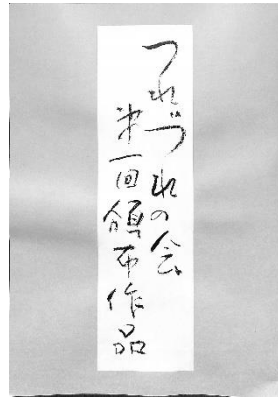 つれづれの会
第一回頒布作品